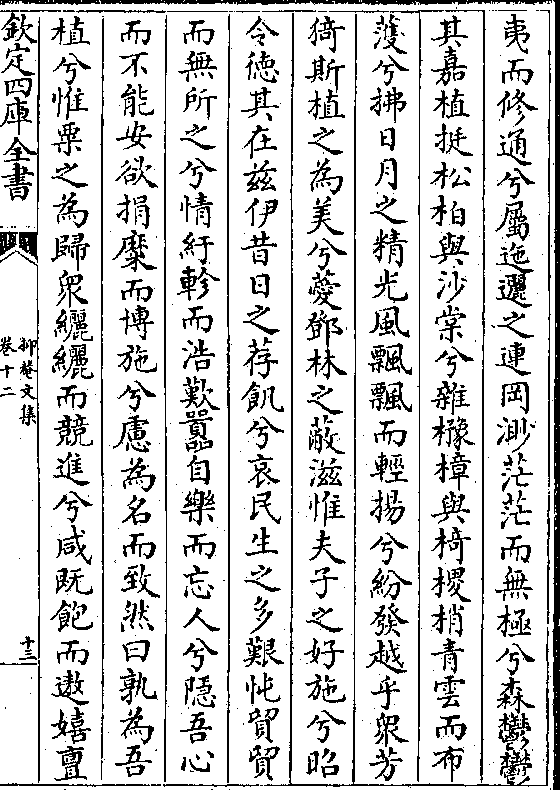 夷而修通兮屬迤邐之連岡渺茫茫而無極兮森鬱鬱
其嘉植挺松柏與沙棠兮雜橼樟與椅椶梢青雲而布
蔓兮拂日月之精光風飄飄而輕揚兮紛發越乎衆芳
猗斯植之為美兮薆鄧林之蔽滋惟夫子之好施兮昭
令德其在兹伊昔日之荐飢兮哀民生之多艱忳貿貿
而無所之兮情紆軫而浩歎嚚自樂而忘人兮隱吾心
而不能安欲捐糜而博施兮慮為名而致然曰孰為吾
植兮惟栗之為歸衆纚纚而競進兮咸既飽而遨嬉亶
欽定四庫全書
抑菴文集
卷十二
十三